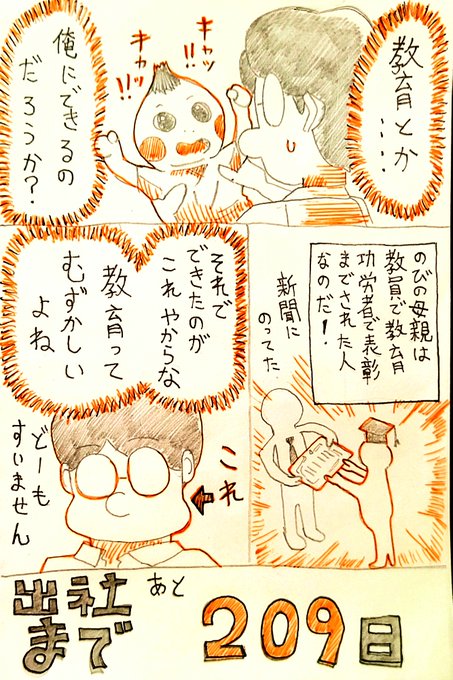 教育とか
‥‥
キャッ
キャッ
!!
!!
俺にできるの
だろうか?
のびの母親は
教員で教育
功労者で表彰
までされた人
なのだ!
新聞に
のってた
それで
できたのが
これやからな
教育って
むずかしい
よね
これ
どーも
すいません
出社
まで
あと
209日